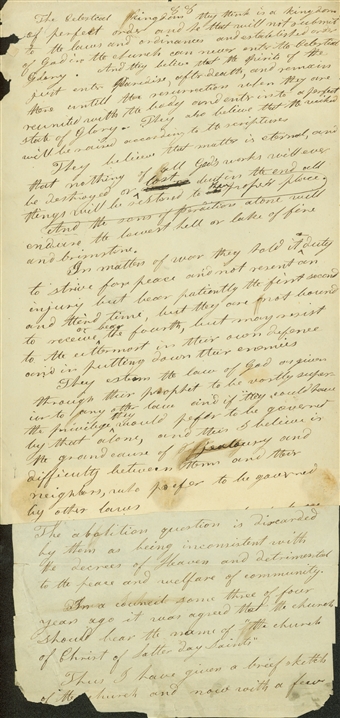 The Celestial Kingdom they think is a kingdom
of perfect order and so that will not submit
to the laws and ordinances and established order
of God in the church can never enter the Celestial
Glory. And they believe that the spirits of the
just enter paradise, after death, and remain
there untill the resurrection when they are
reunited with the body and enter into a perfect
state of Glory. They also believe that the wicked
will be raised according to the scriptures
They believe that matter is eternal, and
that nothing of all God's works will ever
be destroyed or lost and in the end all
things will be restored to their proper place.
And the sons of perdition alone will
endure the lowest hell or lake of fire
and brimstone.
In matters of war they hold it duty
to strive for peace and not resent an
injury but bear patiently the first second
and third time, but they are not bound
to receive or bear the fourth, but may resist
to the uttermost in their own defence
and in putting down their enemies
They esteem the law of God as given
through their prophet to be vastly super
ior to any other law and if they could have
the privilege they would prefer to be governed
by that alone, and this I believe is
the grand cause of jealousy and
difficulty between them and their
neighbors, who prefer to be governed
by other laws
The abolition question is discarded
by them as being inconsistent with
the decrees of Heaven and detrimental
to the peace and welfare of community.
In a council some three of four
years ago it was agreed that the church
should bear the name of "the church
of Christ of Latter day Saints"
Thus I have given a brief sketch
of the church and now with a few